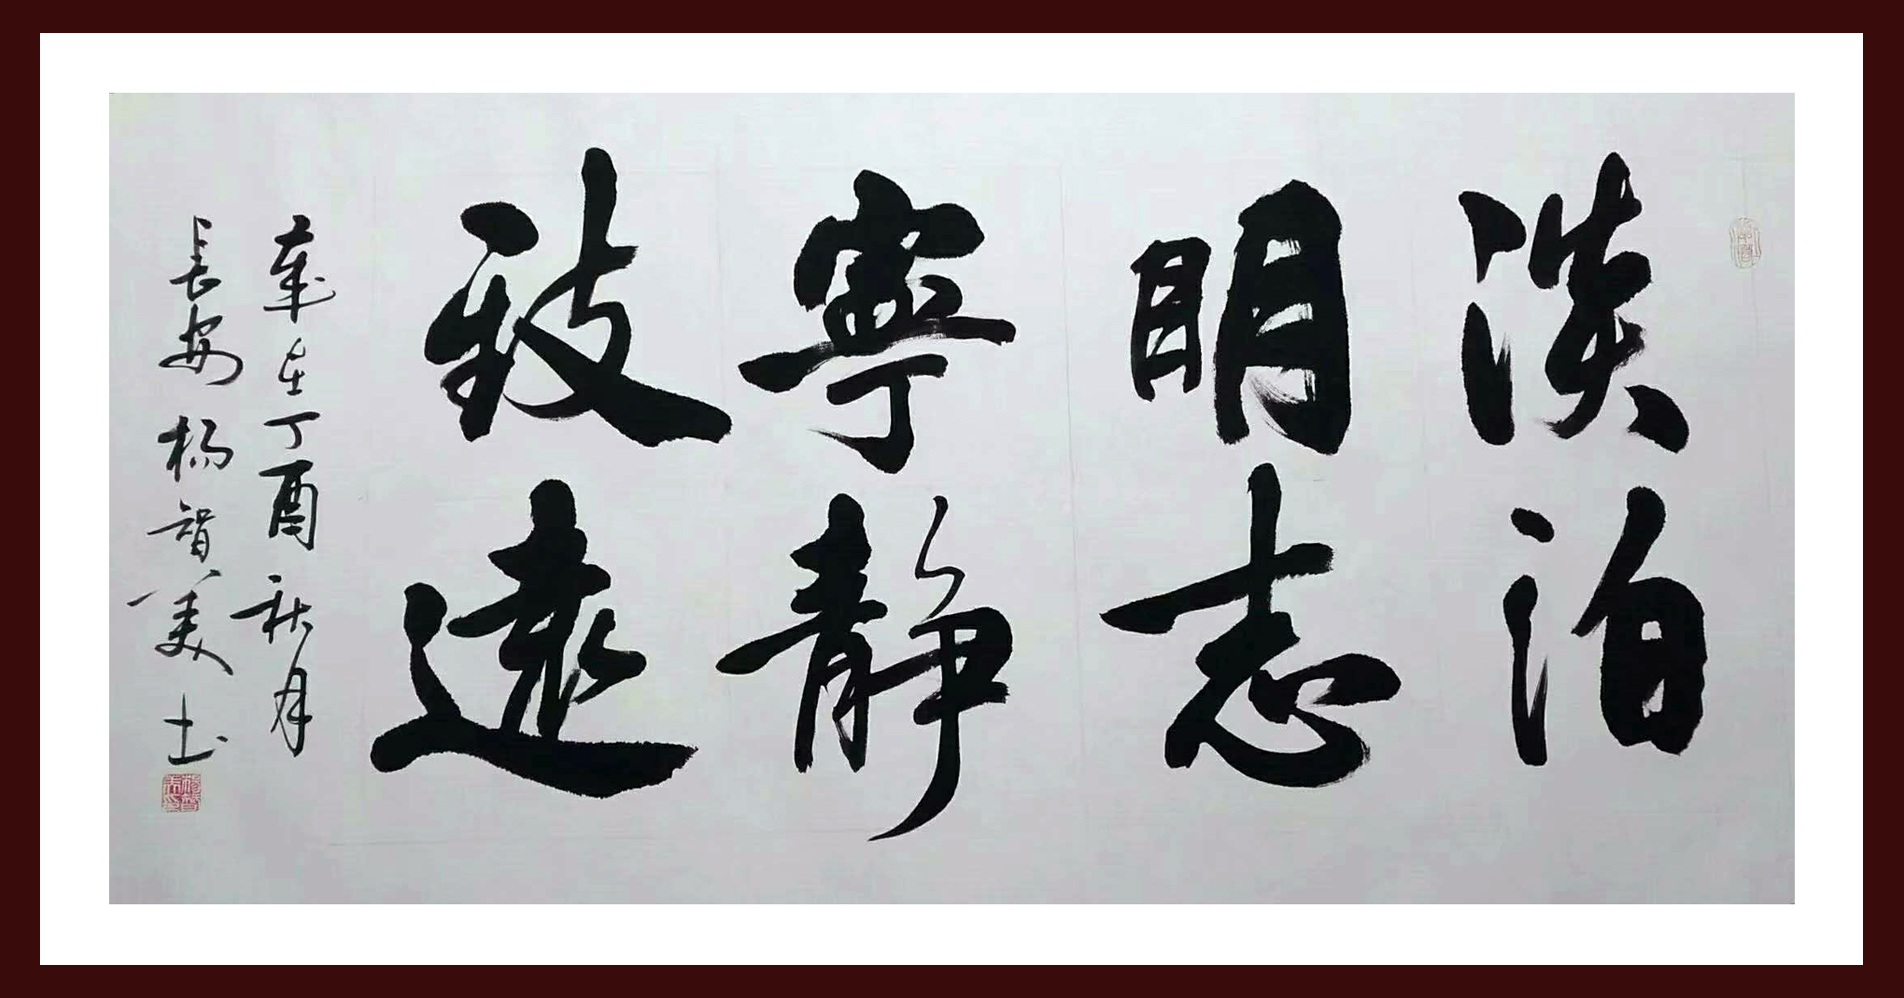 淡泊
明志
寧靜
致遠
歲在丁酉秋月
長安楊智美书